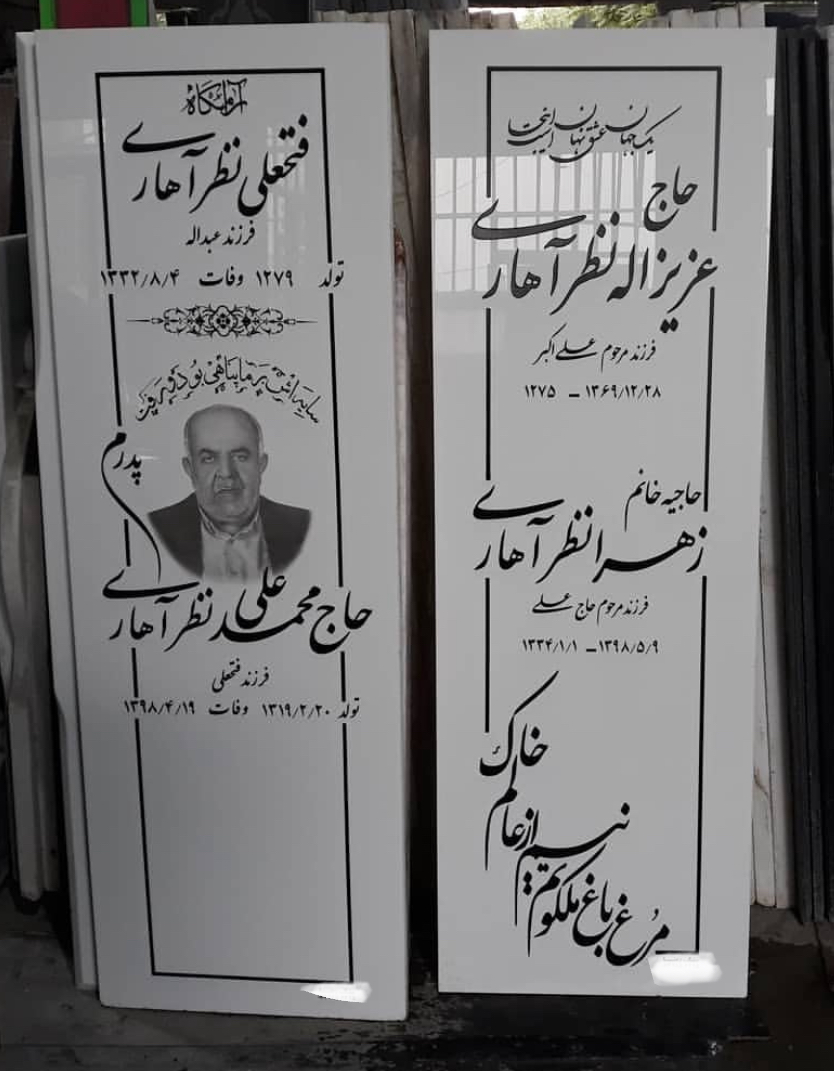 آرامگاه
فتحعلی نظر آهاری
فرزند عبداله
تولد ۱۲۷۹ وفات ۱۳۳۲/۸/۴
سایه اش بر ما پناهی بود و رفت
پدرم
حاج محمد علی نظر آهاری
فرزند فتحعلی
تولد ۱۳۱۹/۲/۲۰ وفات ۱۳۹۸/۴/۱۹
یک جهان عشق نهان اینجاست
حاج
عزیزاله نظر آهاری
فرزند مرحوم علی اکبر
۱۲۷۵ - ۱۳۶۹/۱۲/۲۸
حاجیه خانم
زهرا نظر آهاری
فرزند مرحوم حاج علی
۱۳۳۴/۱/۱ - ۱۳۹۸/۵/۹
مرغ باغ ملکوتم
نیم از عالم
خاک